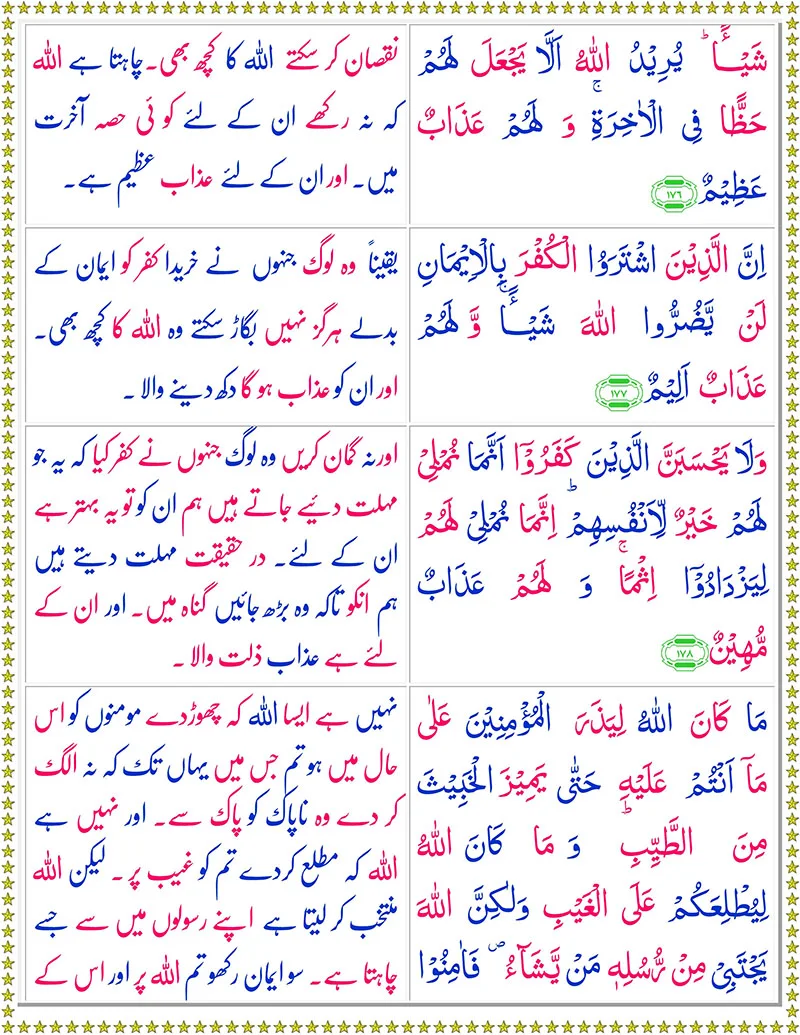 شَیْـًٔاؕ یُرِیْدُ اللّٰهُ اَلَّا یَجْعَلَ لَهُمْ
حَظًّا فِی الْاٰخِرَةِۚ وَ لَهُمْ عَذَابٌ
عَظِیْمٌ ١٧٦
نقصان کر سکتے اللہ کا کچھ بھی۔ چاہتا ہے اللہ
کہ نہ رکھے ان کے لئے کوئی حصہ آخرت
میں۔ اور ان کے لئے عذاب عظیم ہے۔
اِنَّ الَّذِیْنَ اشْتَرَوُا الْكُفْرَ بِالْاِیْمَانِ
لَنْ یَّضُرُّوا اللّٰهَ شَیْـًٔاۚ وَ لَهُمْ
عَذَابٌ اَلِیْمٌ ١٧٧
یقیناً وہ لوگ جنہوں نے خریدا کفر کو ایمان کے
بدلے ہرگز نہیں بگاڑ سکتے وہ اللہ کا کچھ بھی۔
اور ان کو عذاب ہو گا دکھ دینے والا ۔
وَلَا یَحْسَبَنَّ الَّذِیْنَ كَفَرُوْۤا اَنَّمَا نُمْلِیْ
لَهُمْ خَیْرٌ لِّاَنْفُسِهِمْؕ اِنَّمَا نُمْلِیْ لَهُمْ
لِیَزْدَادُوْۤا اِثْمًاۚ وَ لَهُمْ عَذَابٌ
مُّهِیْنٌ ١٧٨
اور نہ گمان کریں وہ لوگ جنہوں نے کفر کیا کہ یہ جو
مہلت دئیے جاتے ہیں ہم ان کو تو یہ بہتر ہے
ان کے لئے۔ در حقیقت مہلت دیتے ہیں
ہم انکو تاکہ وہ بڑھ جائیں گناہ میں۔ اور ان کے
لئے ہے عذاب ذلت والا ۔
مَا كَانَ اللّٰهُ لِیَذَرَ الْمُؤْمِنِیْنَ عَلٰی
مَاۤ اَنْتُمْ عَلَیْهِ حَتّٰی یَمِیْزَ الْخَبِیْثَ
مِنَ الطَّیِّبِؕ وَ مَا كَانَ اللّٰهُ
لِیُطْلِعَكُمْ عَلَی الْغَیْبِ وَلٰكِنَّ اللّٰهَ
یَجْتَبِیْ مِنْ رُّسُلِهٖ مَنْ یَّشَآءُ۪ فَاٰمِنُوْا
نہیں ہے ایسا اللہ کہ چھوڑ دے مومنوں کو اس
حال میں ہو تم جس میں یہاں تک کہ نہ الگ
کر دے وہ ناپاک کو پاک سے۔ اور نہیں ہے
اللہ کہ مطلع کردے تم کو غیب پر ۔ لیکن اللہ
منتخب کر لیتا ہے اپنے رسولوں میں سے جسے
چاہتا ہے۔ سو ایمان رکھو تم اللہ پر اور اس کے